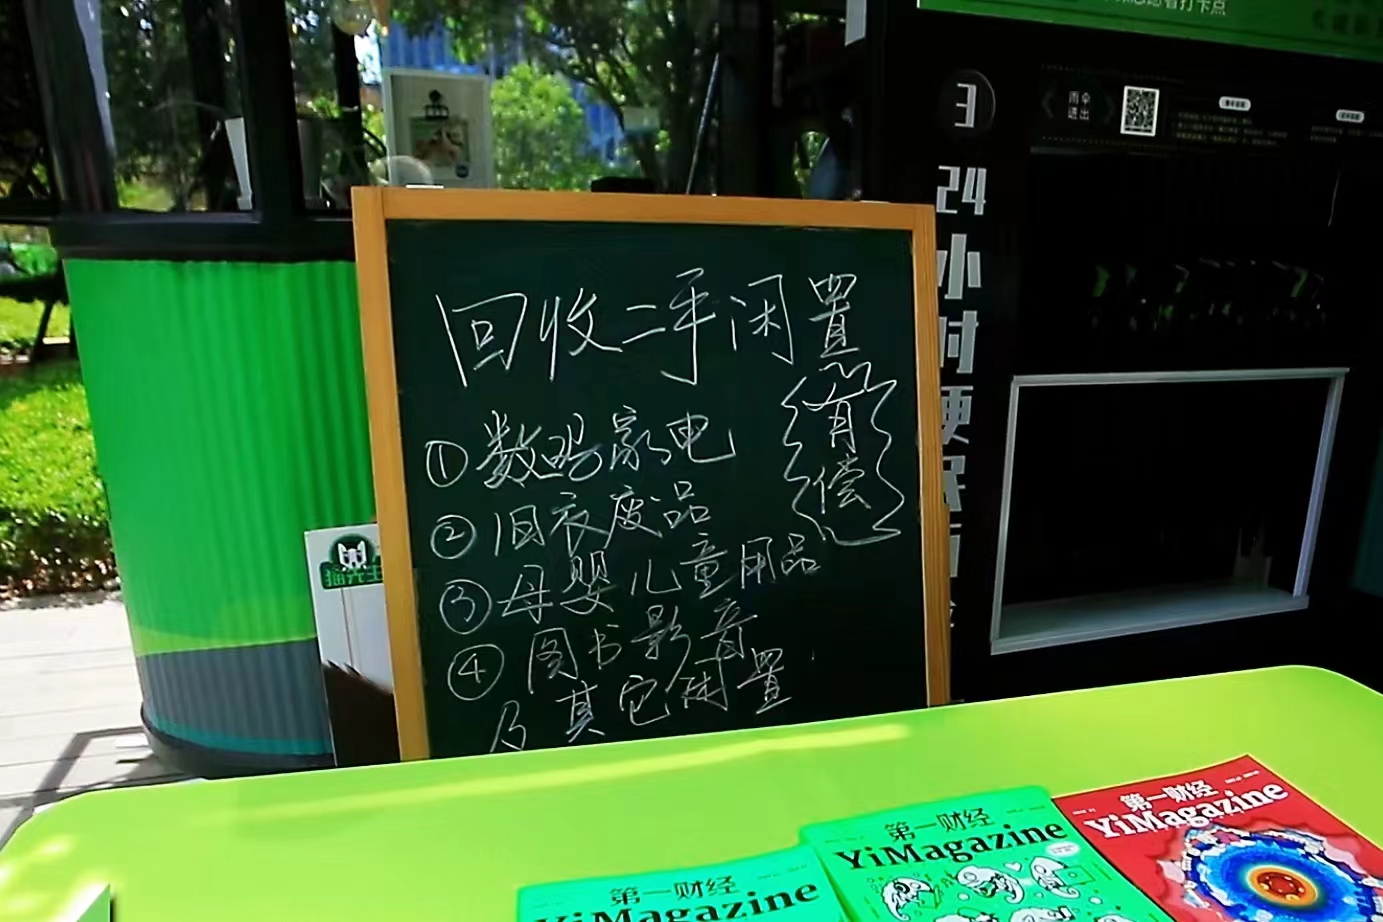 打卡点
3
雨伞
进出
24小时便民
回收二手闲置
有偿
①数码家电
②旧衣废品
③母婴儿童用品
④图书影音
及其它闲置
猫先生
第一财经
YiMagazine
第一财经
YiMagazine
第一财经
YiMagazine